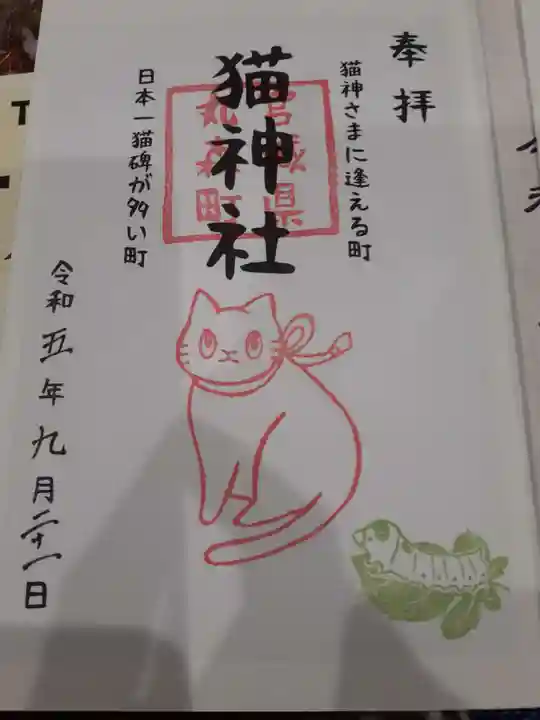 奉拝
猫神さまに逢える町
猫神社
宮城県
丸森町
日本一猫碑が多い町
令和五年九月二十一日
T